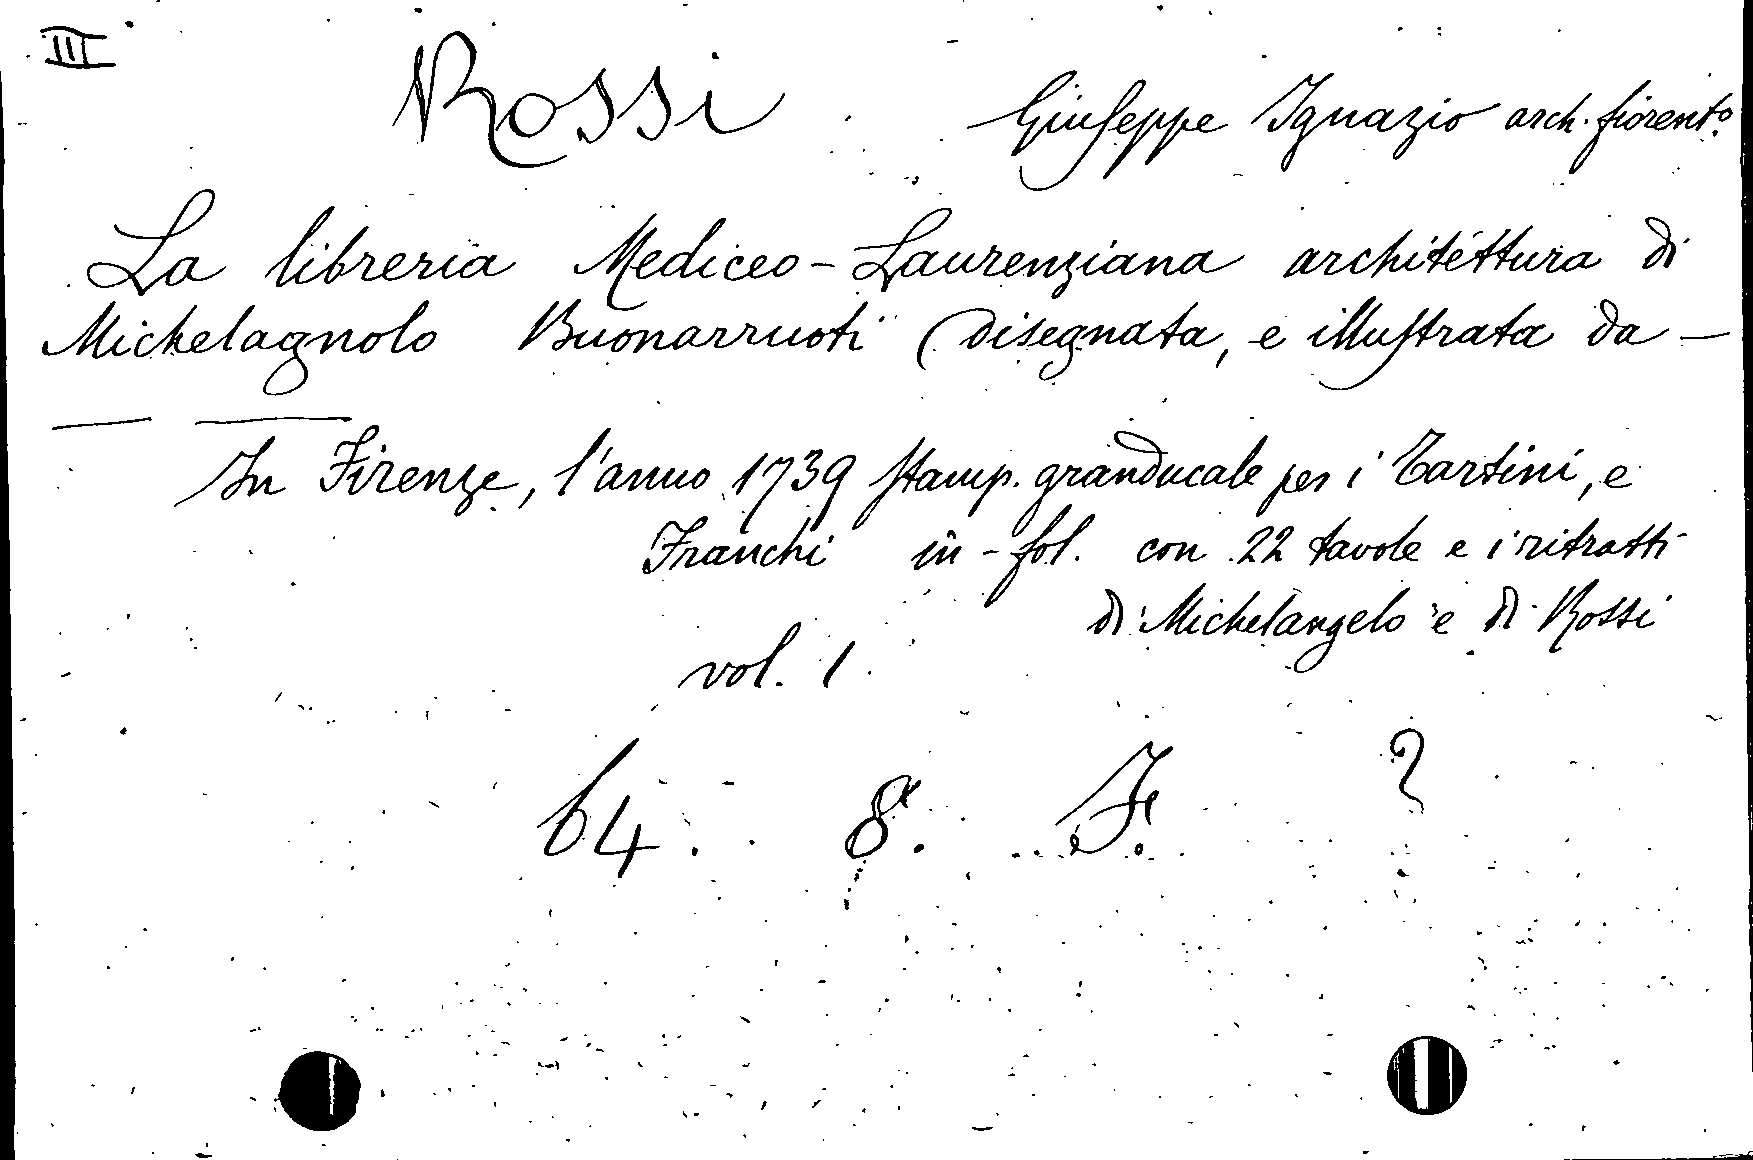 III
Rossi Giuseppe Ignazio arch. fiorento.
La libreria Mediceo-Laurenziana architettura di
Michelagnolo Buonarruoti (disegnata, e illustrata da —
— —
In Firenze, l'anno 1739 stamp. granducale per i Tartini, e
Franchi in-fol. con 22 tavole e i ritratti
di Michelangelo e di Rossi
vol. 1
64. 8. F. ?